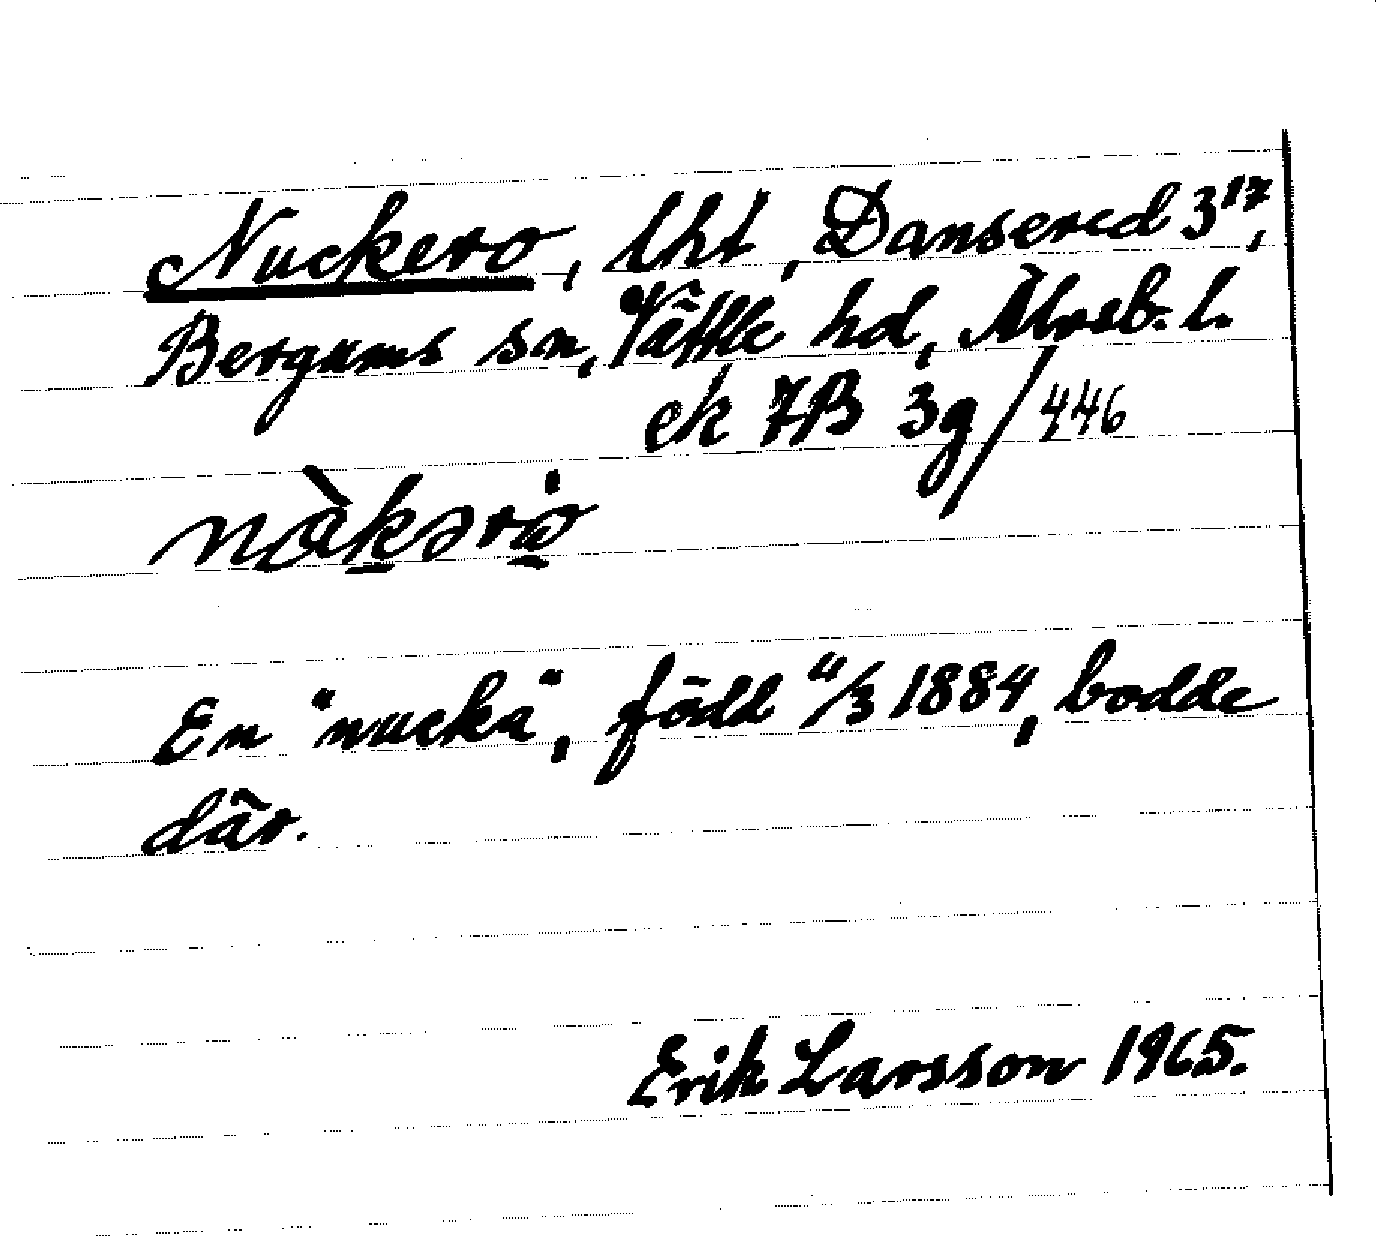 Nuckero, lht, Dansered 3¹⁷,
Bergums sn, Vättle hd, Älvsb. l.
ek 7B 3g/446
nòkərò
En "nucka", född 4/3 1884, bodde
där.
Erik Larsson 1965.